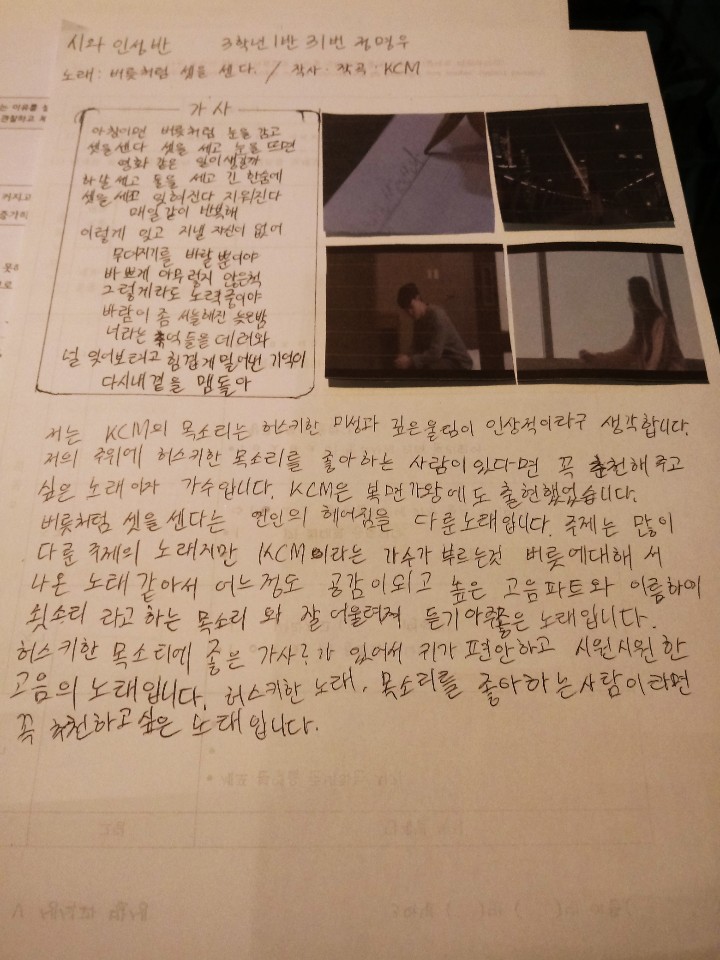 시와 인성반 3학년 1반 31번 정명우
노래: 버릇처럼 셋을 센다. / 작사·작곡·KCM
가사
아침이면 버릇처럼 눈을 감고
셋을 센다 셋을 세고 눈을 뜨면
영화 같은 일이 생길까
하날 세고 둘을 세고 긴 한숨에
셋을 세고 잊혀진다 지워진다
매일같이 반복해
이렇게 잊고 지낼 자신이 없어
무뎌지기를 바랄 뿐이야
바쁘게 아무렇지 않은척
그렇게라도 노력중이야
바람이 좀 서늘해진 늦은밤
너라는 추억들을 데려와
널 잊어보려고 힘겹게 밀어낸 기억이
다시 내 곁을 맴돌아
저는 KCM의 목소리는 허스키한 미성과 깊은울림이 인상적이라구 생각합니다.
저의 주위에 허스키한 목소리를 좋아하는 사람이 있다면 꼭 추천해주고
싶은 노래이자 가수입니다. KCM은 복면가왕에도 출현했었습니다.
버릇처럼 셋을 센다는 연인의 헤어짐을 다룬노래입니다. 주제는 많이
다룬 주제의 노래지만 KCM이라는 가수가 부르는것 버릇에대해 서
나온 노래 같아서 어느정도 공감이되고 높은 고음파트와 이름하야
쇳소리 라고하는 목소리 와 잘 어울려져 듣기아주좋은 노래입니다.
허스키한 목소리에 좋은 가사?가 있어서 귀가 편안하고 시원시원한
고음의 노래입니다. 허스키한 노래, 목소리를 좋아하는사람이라면
꼭 추천하고싶은 노래입니다.